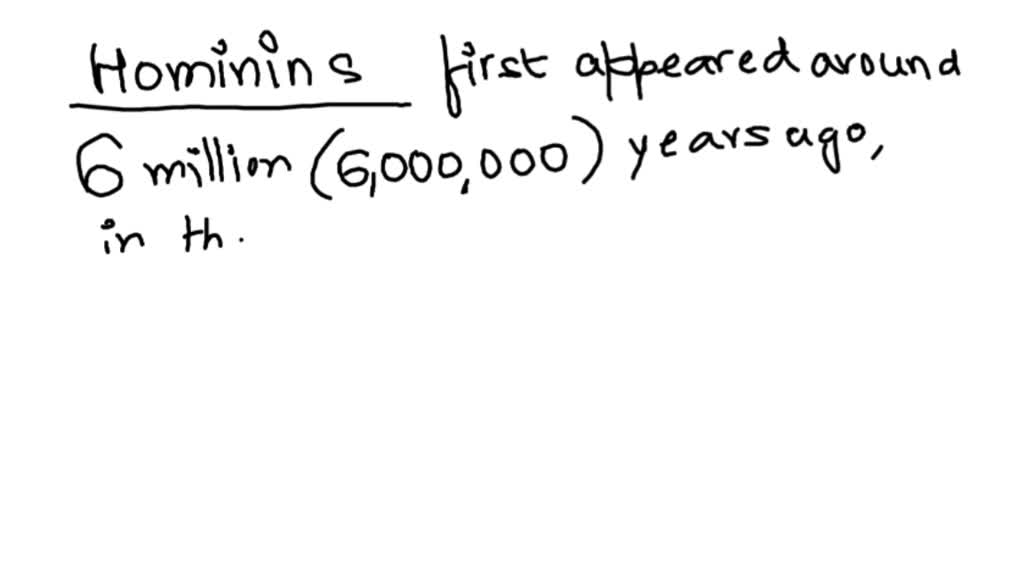 Hominins first appeared around
6 million (6,000,000) years ago,
in th.